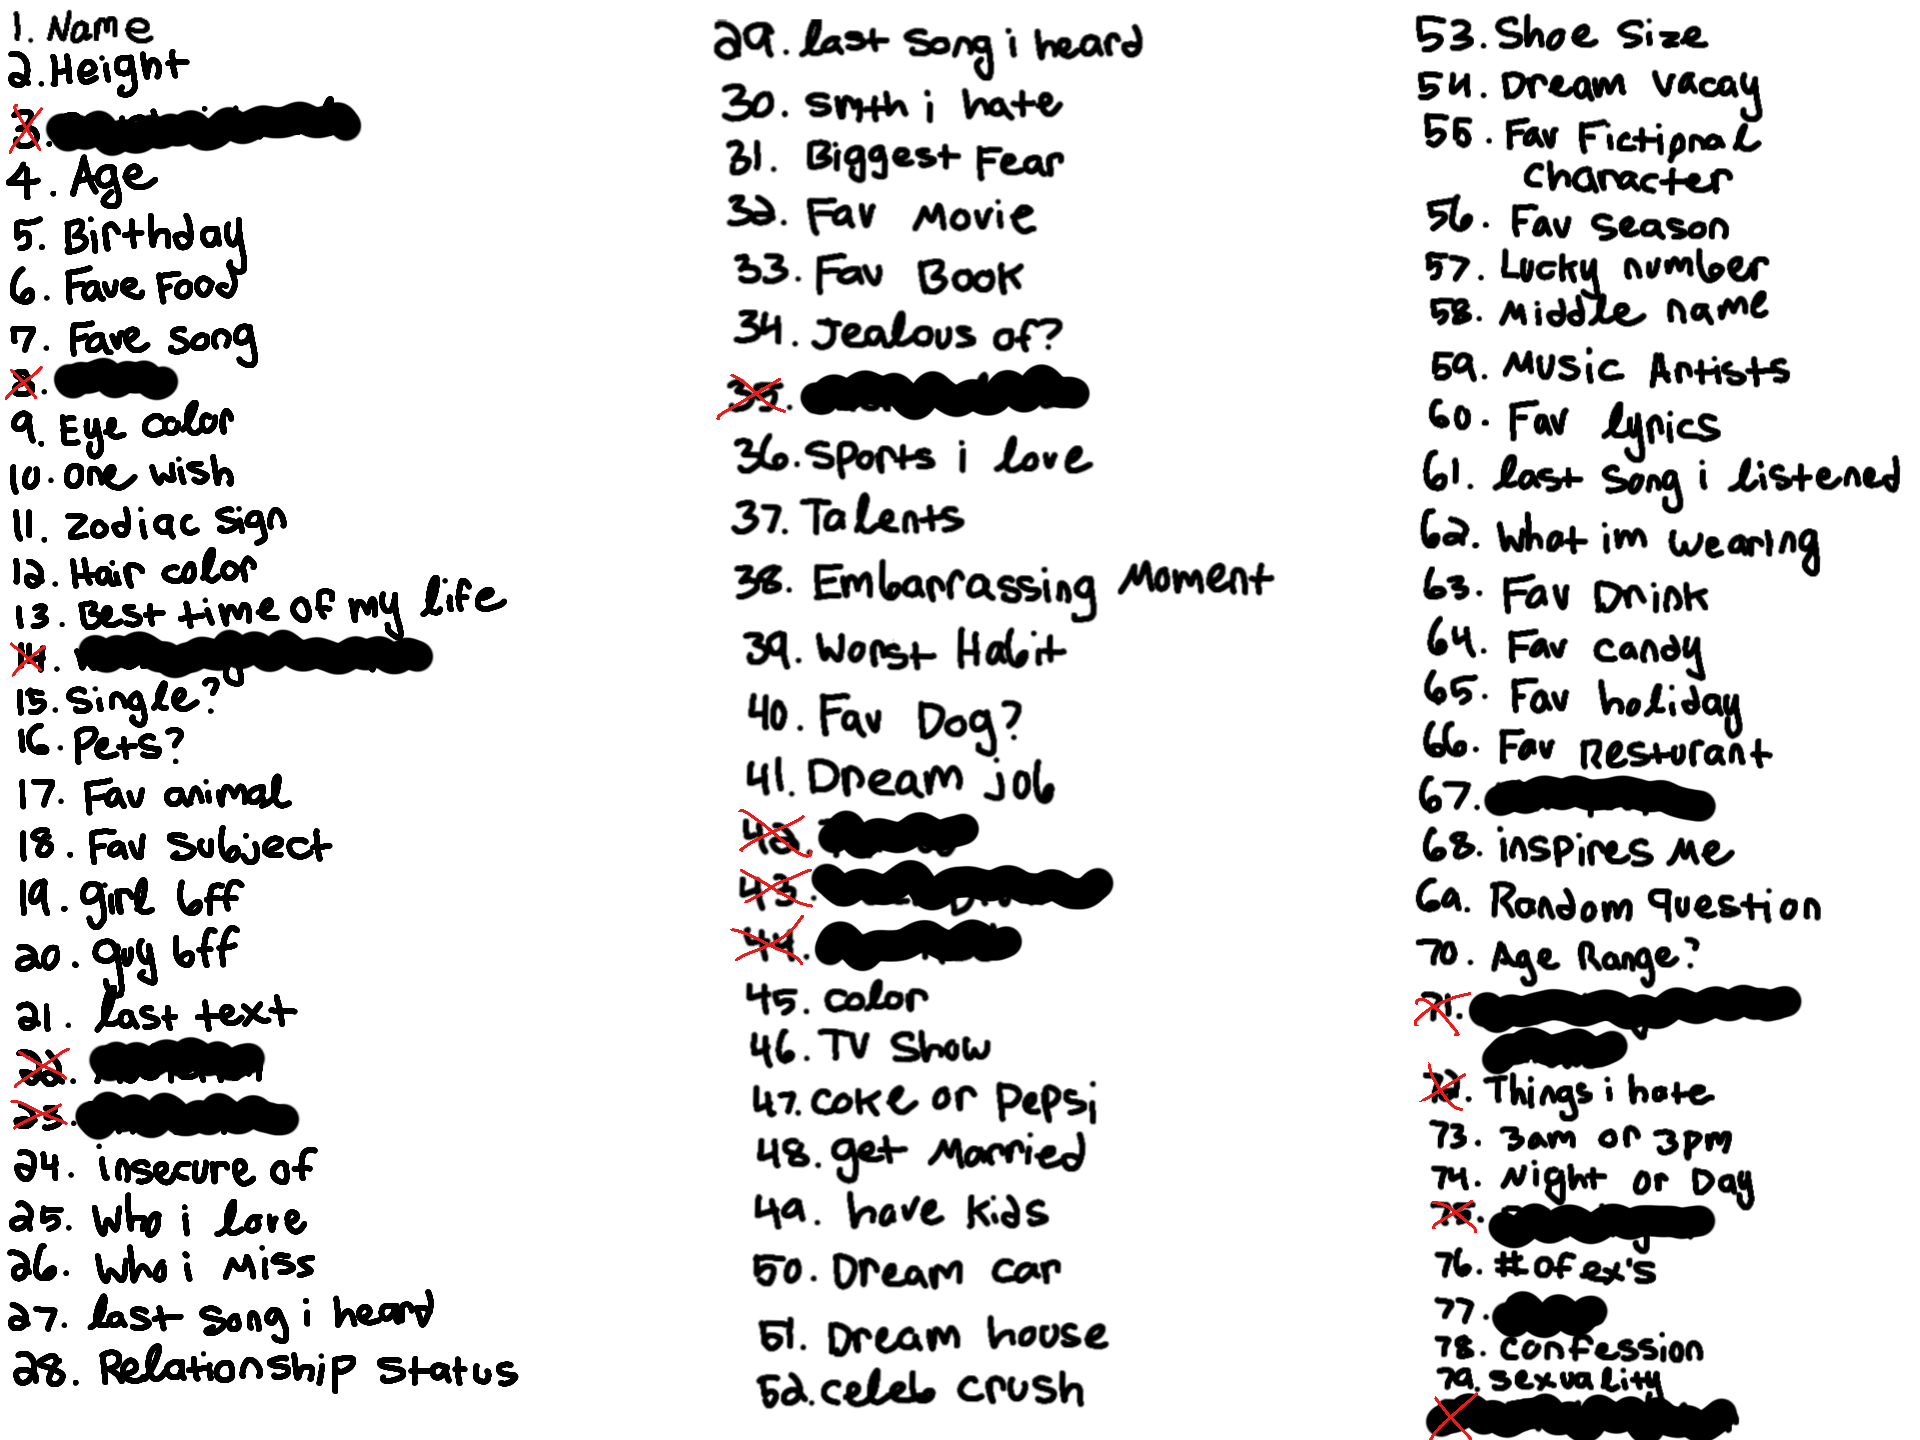 1. Name
2. Height
3.
4. Age
5. Birthday
6. Fave Food
7. Fave song
8.
9. Eye color
10. one wish
11. zodiac sign
12. Hair color
13. Best time of my life
14.
15. Single?
16. Pets?
17. Fav animal
18. Fav subject
19. girl bff
20. guy bff
21. last text
22.
23.
24. insecure of
25. Who i love
26. Who i Miss
27. last song i heard
28. Relationship status
29. last song i heard
30. smth i hate
31. Biggest Fear
32. Fav Movie
33. Fav Book
34. Jealous of?
35.
36. Sports i love
37. Talents
38. Embarrassing Moment
39. Worst Habit
40. Fav Dog?
41. Dream job
42.
43.
44.
45. color
46. TV Show
47. coke or Pepsi
48. get Married
49. have kids
50. Dream car
51. Dream house
52. celeb crush
53. Shoe Size
54. Dream vacay
55. Fav Fictional
character
56. Fav season
57. Lucky number
58. Middle name
59. Music Artists
60. Fav lyrics
61. last song i listened
62. What im wearing
63. Fav Drink
64. Fav candy
65. Fav holiday
66. Fav Resturant
67.
68. inspires Me
69. Random question
70. Age Range?
71.
72. Things i hate
73. 3am or 3pm
74. Night or Day
75.
76. # of ex's
77.
78. confession
79. sexuality